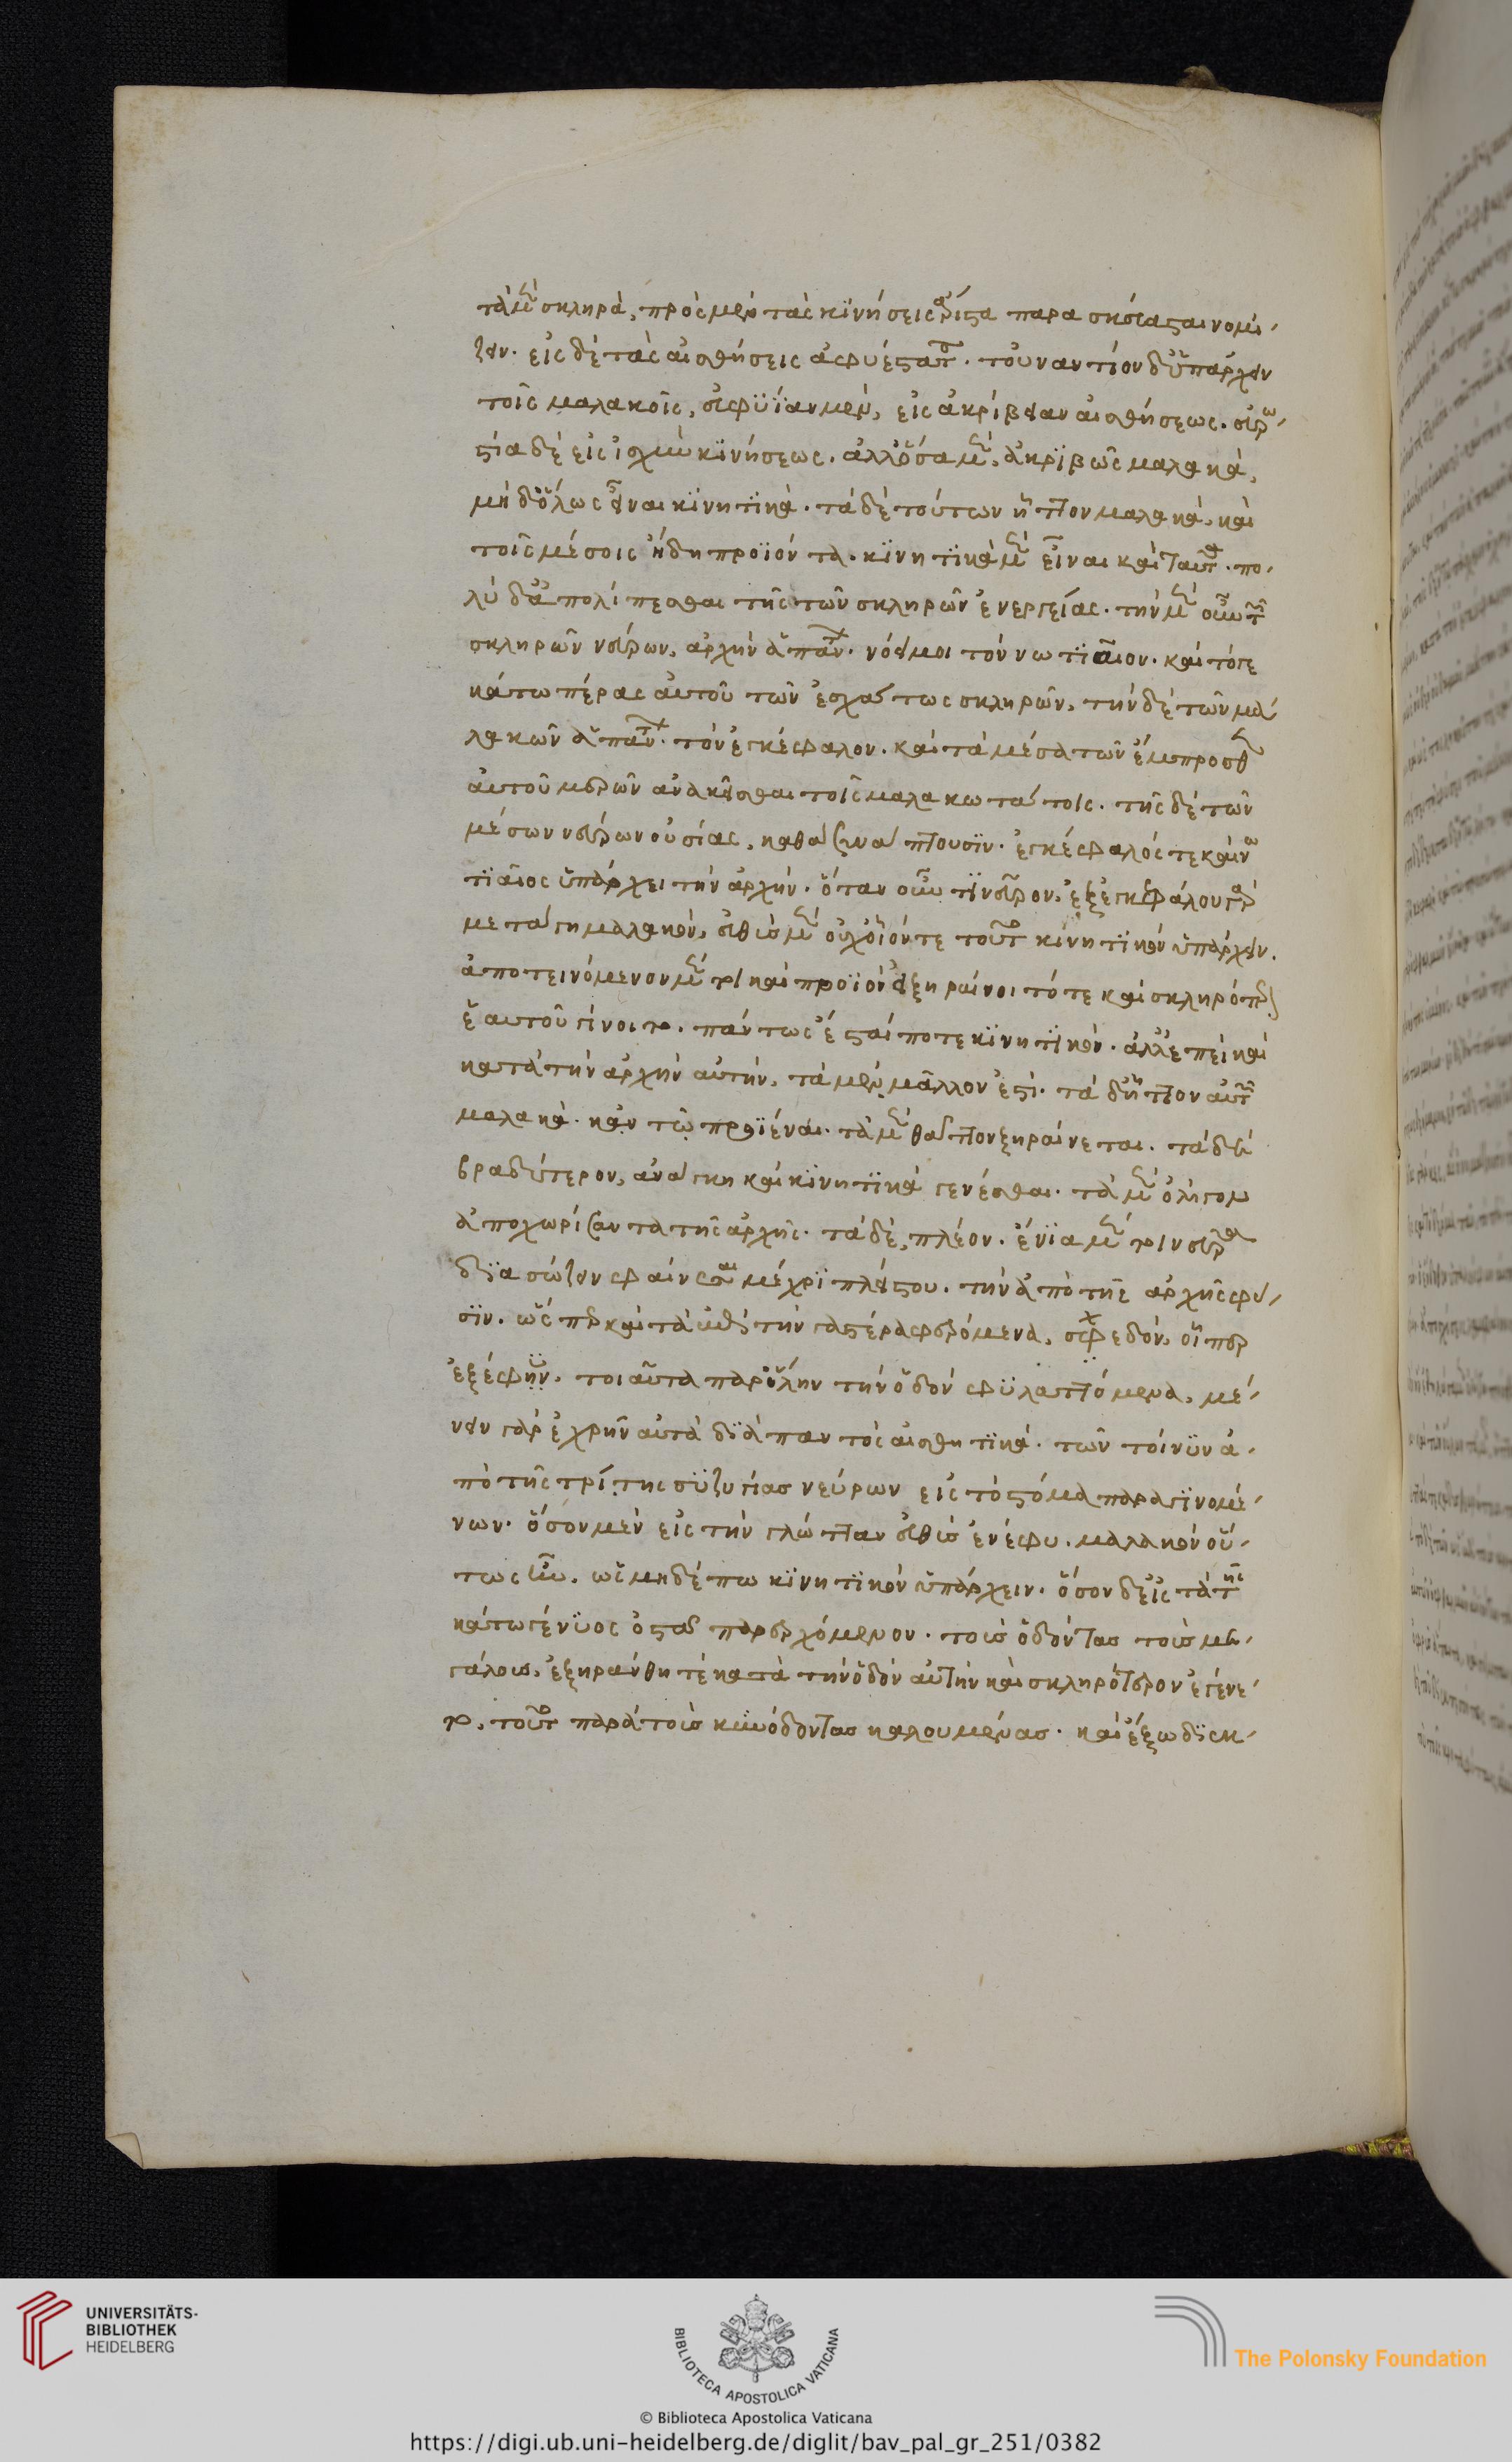 τὰ μὲν σκληρὰ, πρὸς μὲν τὰς κινήσεις ἄριστα παρασκευάσται νομί-
ζειν. εἰς δὲ τὰς αἰσθήσεις ἀφυέστατα. τοὐναντίον δ' ὑπάρχειν
τοῖς μαλακοῖς, εὐφυΐαν μὲν, εἰς ἀκρίβειαν αἰσθήσεως. ἀρρω-
στία δὲ εἰς ἰσχὺν κινήσεως. ἀλλ' ὅσα μὲν ἀκριβῶς μαλακὰ,
μὴ δ' ὅλως εἶναι κινητικά. τὰ δὲ τούτων ἧττον μαλακὰ, καὶ
τοῖς μέσοις ἤδη προϊόντα. κινητικὰ μὲν εἶναι καὶ ταῦτα. πο-
λὺ δ' ἀπολίπεσθαι τῆς τῶν σκληρῶν ἐνεργείας. τὴν μὲν οὖν τῶν
σκληρῶν νεύρων, ἀρχὴν ἁπάντων. νόει μοι τὸν νωτιαῖον. καὶ τό γε
κάτω πέρας αὐτοῦ τῶν ἐσχάτως σκληρῶν, τὴν δὲ τῶν μα
λακῶν ἁπάντων. τὸν ἐγκέφαλον. καὶ τὰ μέσα τῶν ἔμπροσθεν
αὐτοῦ μερῶν ἀνακεῖσθαι τοῖς μαλακωτάτοις. τῆς δὲ τῶν
μέσων νεύρων οὐσίας, καθὰ συνάπτουσιν. ἐγκέφαλός τε καὶ νω
τιαῖος ὑπάρχει τὴν ἀρχήν. ὅταν οὖν τι νεῦρον, ἐξ ἐγκεφάλου γὰρ
μεταγη μαλακὸν, εὐθὺς μὲν οὐχ οἷόν τε τοῦτο κινητικὸν ὑπάρχειν.
ἀποτεινόμενον μέντοι καὶ προϊὸν εἰ ξηραίνοιτό τε καὶ σκληρότερον
ἑαυτοῦ γίνοιτο. πάντως ἔσται ποτὲ κινητικόν. ἀλλ' ἐπεὶ καὶ
κατὰ τὴν ἀρχὴν αὐτὴν, τὰ μὲν μᾶλλον ἐστὶ. τὰ δ' ἧττον αὐτῶν
μαλακὰ. κἂν τῷ προϊέναι. τὰ μὲν θᾶττον ξηραίνεται. τὰ δὲ
βραδύτερον, ἀνάγκη καὶ κινητικὰ γενέσθαι. τὰ μὲν ὀλίγον
ἀποχωρίσαντα τῆς ἀρχῆς. τὰ δὲ, πλέον. ἔνια μέντοι νεῦρα
διασώζειν φαίνεται μέχρι πλείστου. τὴν ἀπὸ τῆς ἀρχῆς φύ-
σιν. ὥσπερ καὶ τὰ εἰς τὴν γαστέρα φερόμενα, σχεδὸν, οἵπερ
ἐξέφυν. τοιαῦτα παρ' ὅλην τὴν ὁδὸν φυλαττόμενα, μέ-
νειν γὰρ ἐχρῆν αὐτὰ διὰ παντὸς αἰσθητικὰ. τῶν τοίνυν ἀ-
πὸ τῆς τρίτης συζυγίας νεύρων εἰς τὸ στόμα παραγινομέ-
νων. ὅσον μὲν εἰς τὴν γλῶτταν εὐθὺς ἐνέφυ. μαλακὸν οὕ-
τως ἦν. ὡς μηδέπω κινητικὸν ὑπάρχειν. ὅσον δ' εἰς τὰ τῆς
κάτω γένυος ὀστᾶ παρερχόμενον. τοὺς ὀδόντας τοὺς με-
γάλους, ἐξηράνθη τὲ κατὰ τὴν ὁδὸν αὐτὴν καὶ σκληρότερον ἐγένε-
το. τοῦτο παρὰ τοὺς κυνόδοντας καλουμένας. καὶ ἔξω διεκ-
UNIVERSITÄTS-
BIBLIOTHEK
HEIDELBERG
BIBLIOTECA APOSTOLICA VATICANA
The Polonsky Foundation
© Biblioteca Apostolica Vaticana
https://digi.ub.uni-heidelberg.de/diglit/bav_pal_gr_251/0382